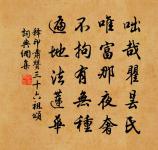 咄哉瞿曇氏
唯富那夜奢
不拘有無種
遍地法蓮華
釋印肅贊三十六祖頌
詞典網集